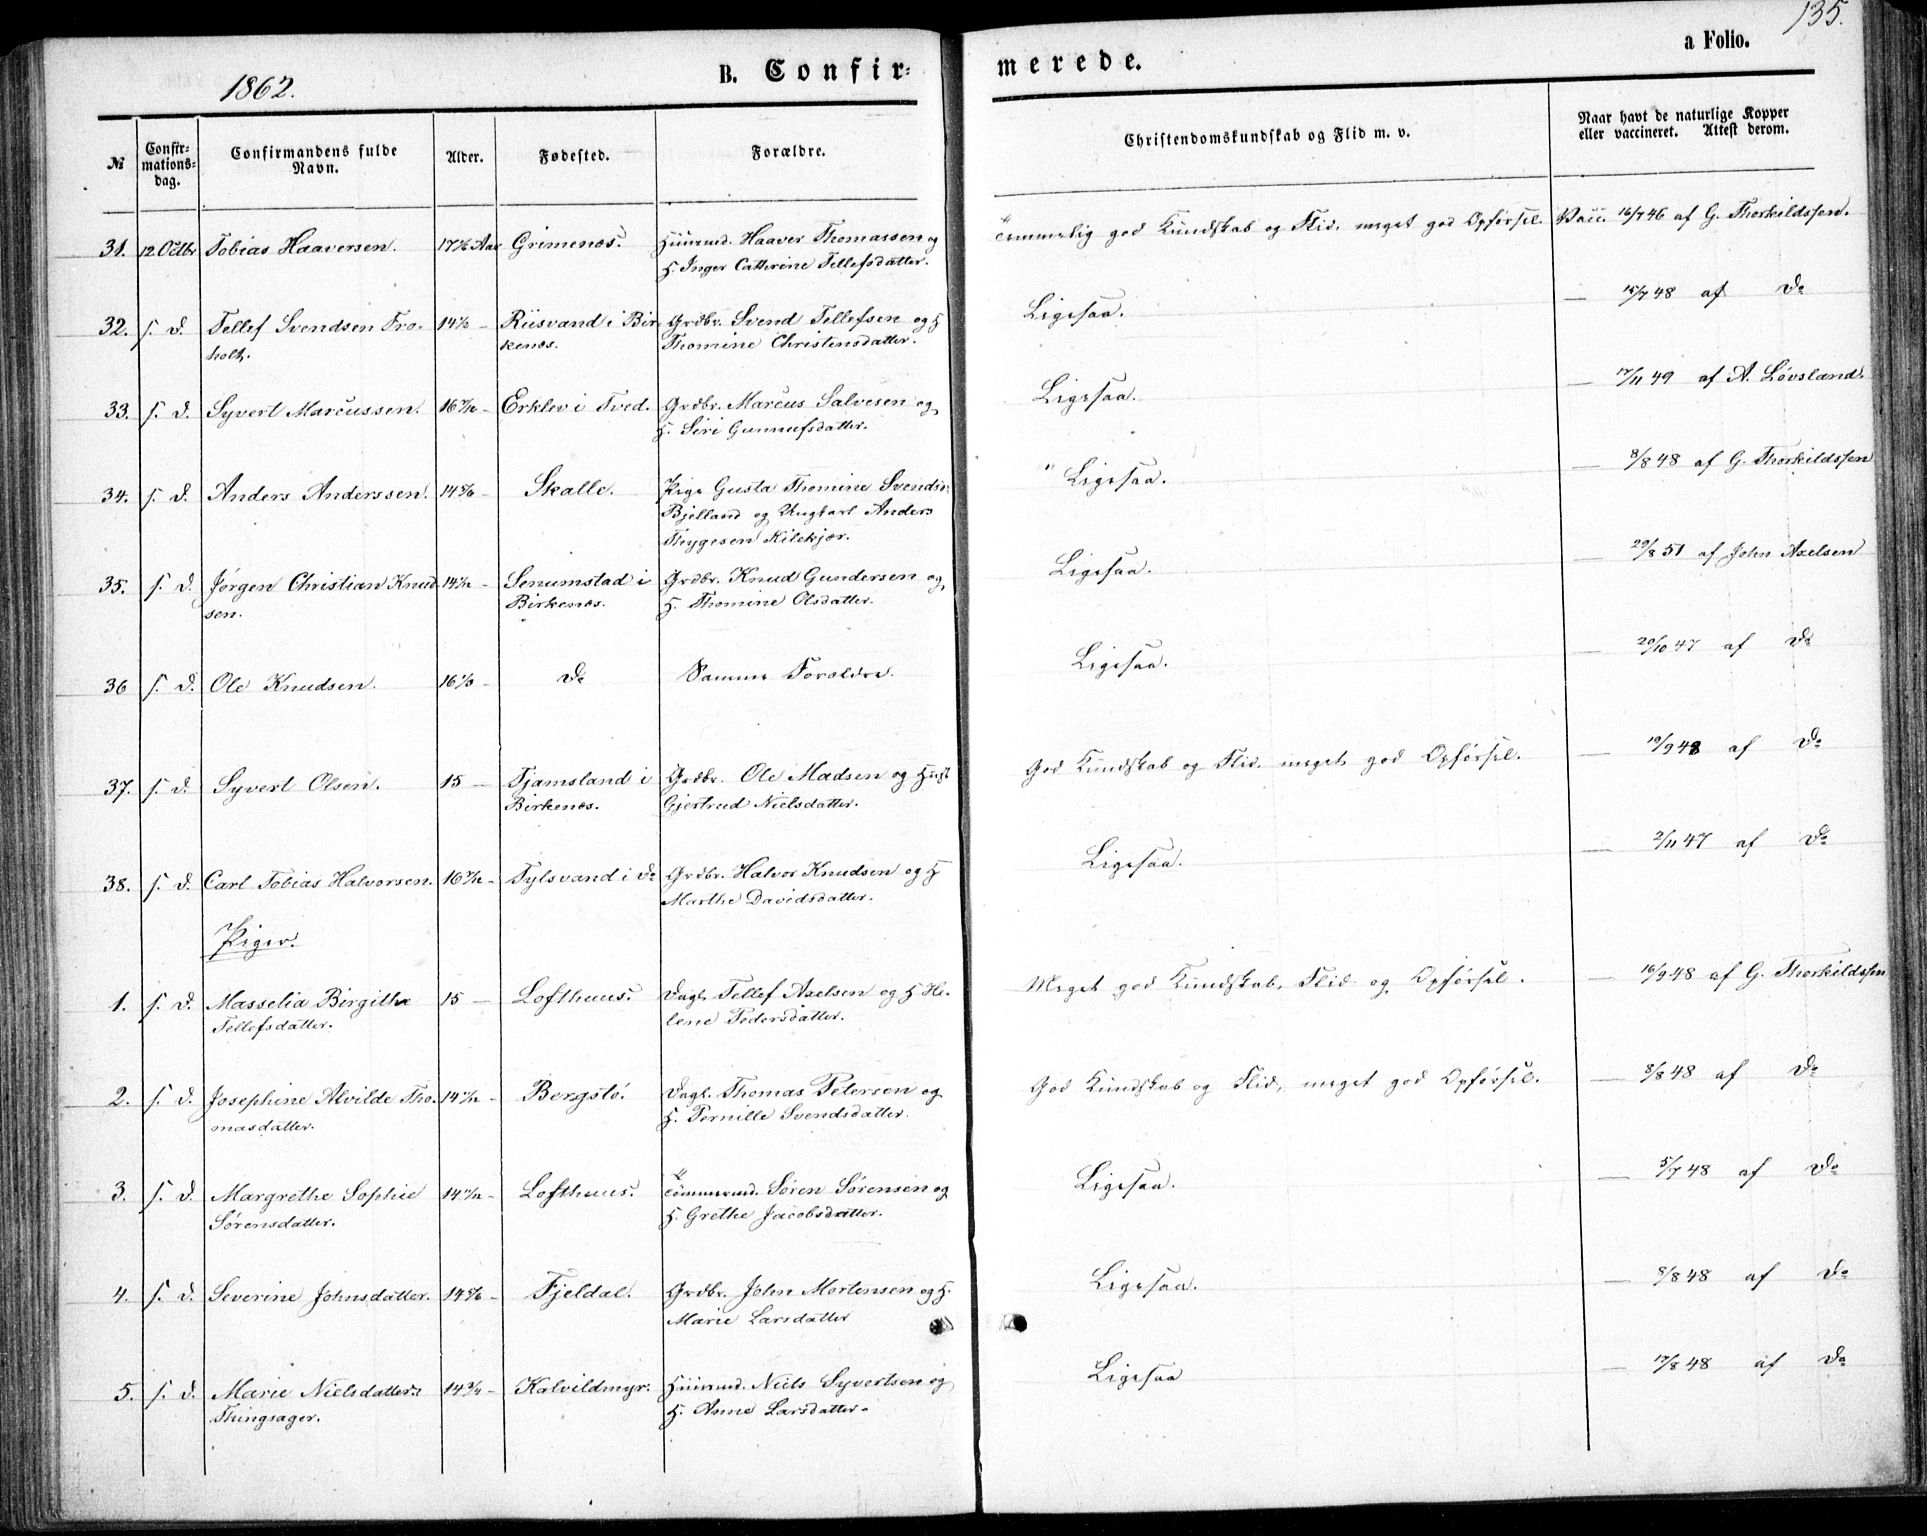 135.
1862.
B. Confir-
merede.
a Folio.
№
Confir-
mations-
dag.
Confirmandens fulde
Navn.
Alder.
Fødested.
Forældre.
Christendomskundskab og Flid m. v.
Naar havt de naturlige Kopper
eller vaccineret. Attest derom.
31. 12 Octbr Tobias Haaversen. Aar Grimenæs. Huusmd. Haaver Thomassen og Temmelig god Kundskab og Flid, meget god Opførsel. Vacc. 16/7 46 af G. Thorkildssen.
H. Inger Cathrine Tellefsdatter.
32. s. d. Tellef Svendsen Fro- 14½ — Riisvand i Bir- Grdbr. Svend Tellefsen og H Ligesaa. — 15/7 48 af Do
holt. kenæs. Thomine Christensdatter.
33. s. d. Syvert Marcussen. 16 — Erklev i Tved. Grdbr. Marcus Salvesen og Ligesaa. — 17/11 49 af A. Løvsland.
H. Siri Gunnufsdatter.
34. s. d. Anders Anderssen. 14 5/6 — Skalle. Pige Gusta Thomine Svendsd. Ligesaa. — 8/8 48 af G. Thorkildssen
Bjelland og Ungkarl Anders
Thygesen Kilekjær.
35. s. d. Jørgen Christian Knud- 14 — Senumstad i Grdbr. Knud Gundersen og Ligesaa. — 29/8 51 af John Axelsen
sen. Birkenæs. H. Thomine Olsdatter.
36 s. d. Ole Knudsen. 16 — Do Samme Forældre. Ligesaa. — 20/10 47 af Do
37. s. d. Syvert Olsen. 15 — Tjamsland i Grdbr. Ole Madsen og Hust God Kundskab og Flid, meget god Opførsel. — 19/9 48 af Do
Birkenæs. Gjertrud Nielsdatter.
38. s. d. Carl Tobias Halvorsen. 16 — Tylsvand i Do Grdbr. Halvor Knudsen og H Ligesaa. — 2/11 47 af Do
Marthe Davidsdatter.
Piger.
1. s. d. Masselia Birgithe 15 — Lofthuus. Dagl. Tellef Axelsen og H He- Meget god Kundskab, Flid og Opførsel. — 16/9 48 af G. Thorkildssen
Tellefsdatter. lene Pedersdatter.
2. s. d. Josephine Alvilde Tho- 14 — Bergstø. Dagl. Thomas Petersen og God Kundskab og Flid, meget god Opførsel. — 8/8 48 af Do
masdatter. H. Pernille Svendsdatter.
3. s. d. Margrethe Sophie 14 — Lofthuus. Tømmermd. Søren Sørensen og Ligesaa. 5/7 48 af Do
Sørensdatter. H. Grethe Jacobsdatter.
4. s. d. Severine Johnsdatter. 14 5/6 — Fjeldal. Grdbr. John Mortensen og H. Ligesaa. — 8/8 48 af Do
Marie Larsdatter
5. s. d. Marie Nielsdatter 14¾ — Kalvildmyr. Huusmd. Niels Syvertsen og Ligesaa — 17/8 48 af Do
Thingsager. H. Anne Larsdatter.